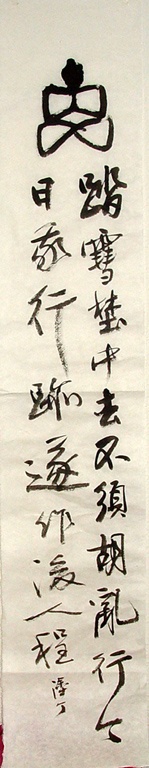 踏雪埜中去不須胡亂行今
日我行跡遂作後人程